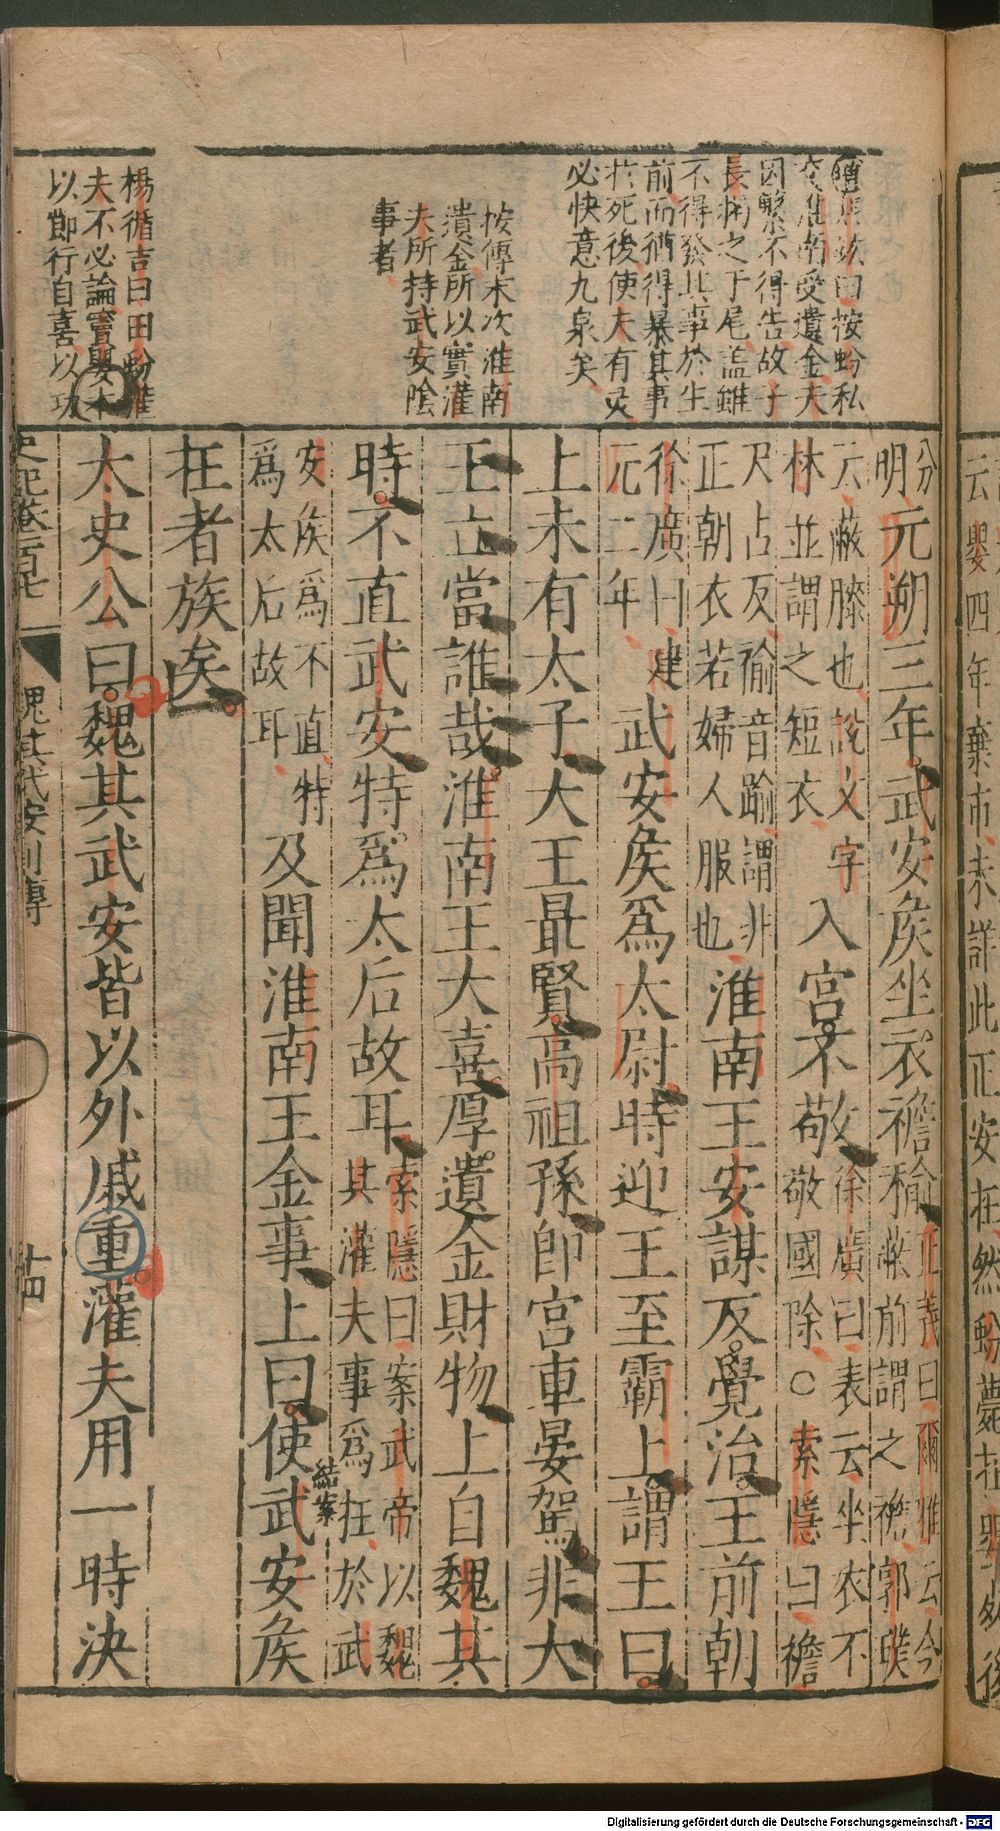 因繫不得告故子
長搁之于尾盖雖
不得發其事於生
前而猶得暴其事
於死後使夫有灵
必快意九泉矣
按傳末次淮南
遺金所以實灌
夫所持武安陰
事者
楊循吉曰田蚡灌
夫不必論竇嬰本
以即行自喜以功
分
明元朔三年武安矦坐衣襜褕正義曰爾雅云今
蔽前謂之襜郭璞
云蔽膝也說文字
林並謂之短衣入宮不敬徐廣曰表云坐衣不
敬國除○索隱曰襜
尺占反褕音踰謂非
正朝衣若婦人服也淮南王安謀反覺治王前朝
徐廣曰建
元二年武安矦爲太尉時迎王至霸上謂王曰
上未有太子大王最賢高祖孫即宮車晏駕非大
王立當誰哉淮南王大喜厚遺金財物上自魏其
時不直武安特爲太后故耳索隱曰案武帝以魏
其灌夫事爲枉於武
安矦爲不直特
爲太后故耳及聞淮南王金事上曰使武安矦
結案
在者族矣
太史公曰魏其武安皆以外戚重灌夫用一時決
史記卷一百七
魏其武安列傳
十四
云嬰四年棄市未詳此正安在然蚡薨在嬰死後
Digitalisierung gefördert durch die Deutsche Forschungsgemeinschaft - DFG